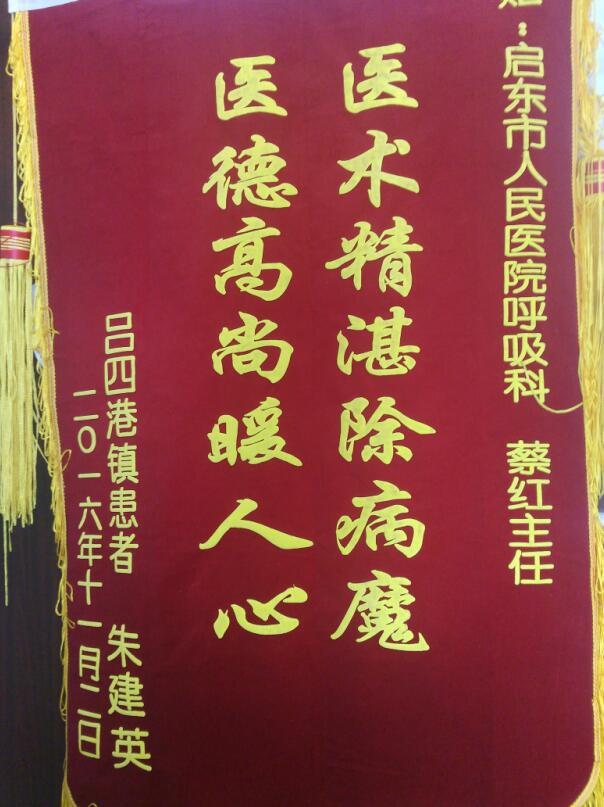 ：启东市人民医院呼吸科 蔡红主任
医术精湛除病魔
医德高尚暖人心
吕四港镇患者 朱建英
二〇一六年十一月二日